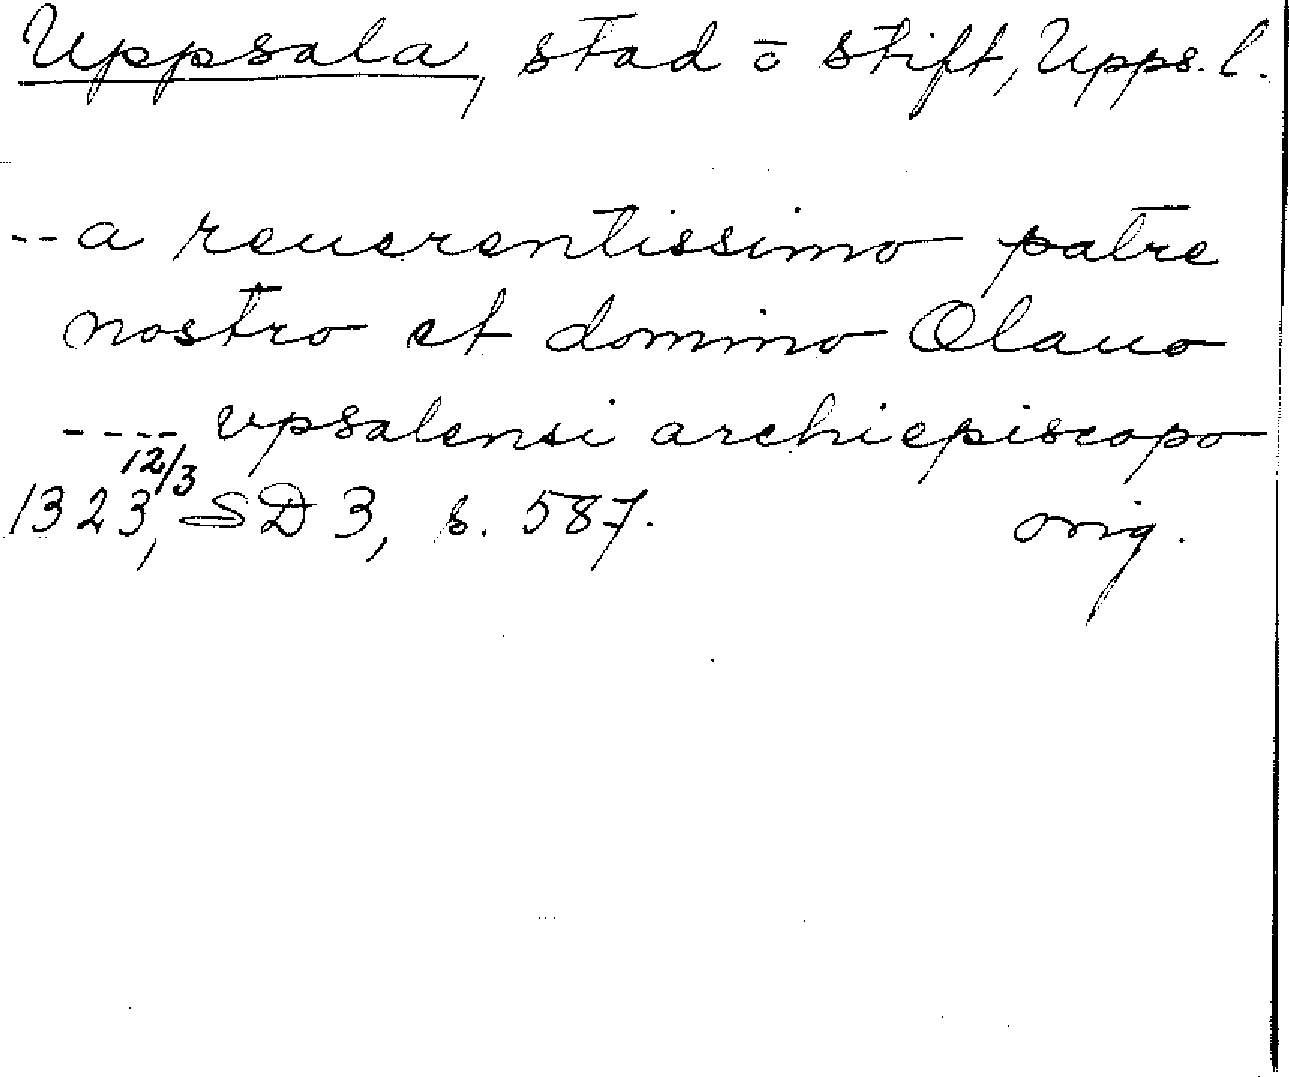 Uppsala, stad o stift, Upps. l.
-- a reuerentissimo patre
nostro et domino Olauo
---- vpsalensi archiepiscopo
12/3
1323, SD 3, s. 587. orig.